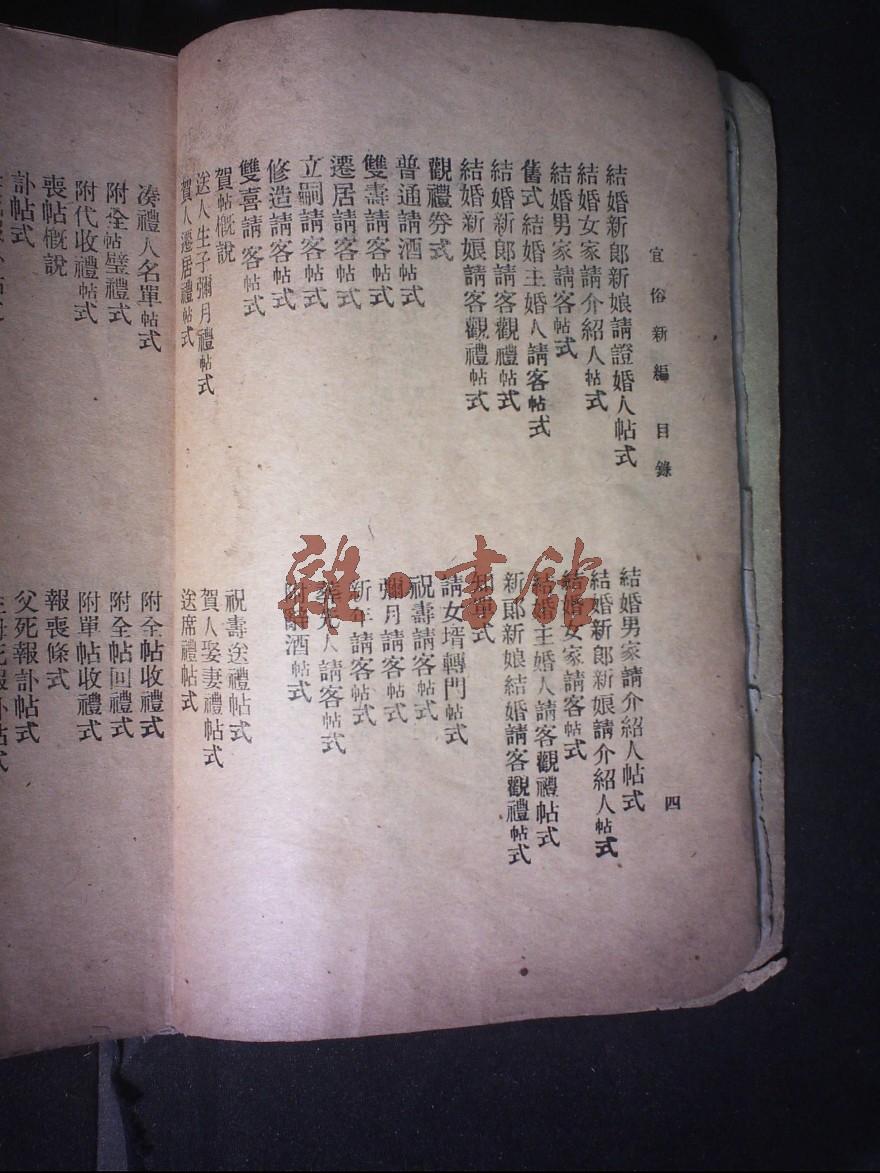 宜俗新編 目錄
四
結婚新郎新娘請證婚人帖式
結婚男家請介紹人帖式
結婚女家請介紹人帖式
結婚新郎新娘請介紹人帖式
結婚男家請客帖式
結婚女家請客帖式
舊式結婚主婚人請客帖式
結婚主婚人請客觀禮帖式
結婚新郎請客觀禮帖式
新郎新娘結婚請客觀禮帖式
結婚新娘請客觀禮帖式
知單式
觀禮券式
請女壻轉門帖式
普通請酒帖式
祝壽請客帖式
雙壽請客帖式
彌月請客帖式
遷居請客帖式
新年請客帖式
立嗣請客帖式
葬先人請客帖式
修造請客帖式
附辭酒帖式
雙喜請客帖式
賀帖概說
祝壽送禮帖式
送人生子彌月禮帖式
賀人娶妻禮帖式
賀人遷居禮帖式
送席禮帖式
湊禮人名單帖式
附全帖收禮式
附全帖璧禮式
附全帖回禮式
附代收禮帖式
附單帖收禮式
喪帖概說
報喪條式
訃帖式
父死報訃帖式
雜·書館